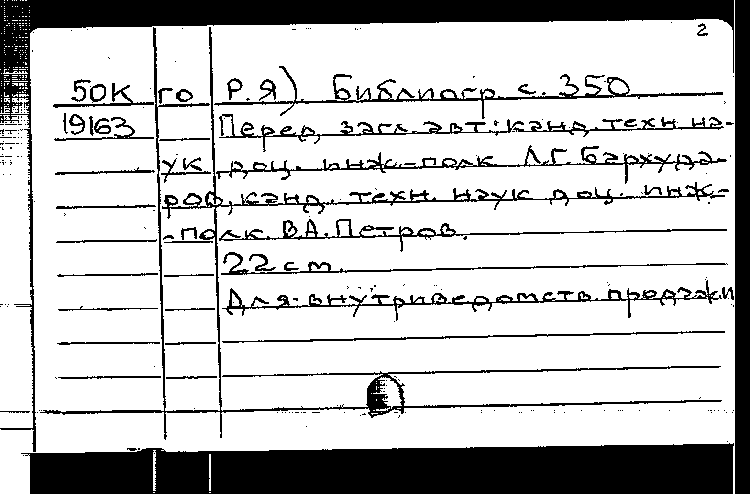 2
50К го Р.Я). Библиогр с. 350
19163 Перед загл. авт.: канд. техн на-
ук, доц. инж-полк Л.Г. Бархуда-
ров, канд. техн. наук доц. инж-
-полк. В.А. Петров.
22 см.
Для внутриведомств. продажи